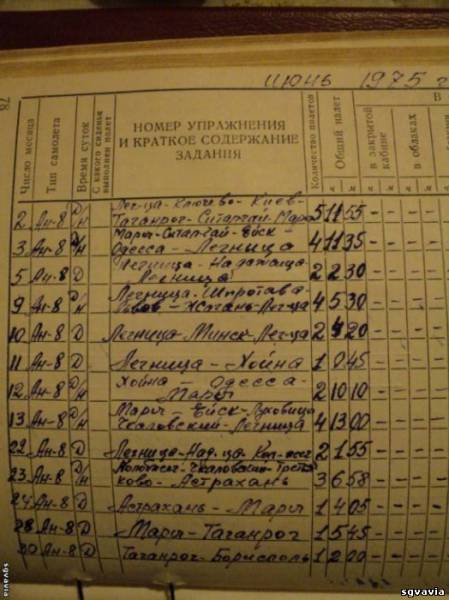 июнь 1975 г
87
Число месяца
Тип самолета
Время суток
С какого сиденья выполнен налет
НОМЕР УПРАЖНЕНИЯ
И КРАТКОЕ СОДЕРЖАНИЕ
ЗАДАНИЯ
Количество полетов
Общий налет
в закрытой кабине
в облаках
В
ч м ч м ч м
2 Ан-8 Д/Н Лег-ца-Ключево-Киев- Таганрог-Ситалчай-Мары 5 11 55 - - - -
3 Ан-8 Д/Н Мары-Ситалчай-Ейск- Одесса-Легница 4 11 35 - - - -
5 Ан-8 Д Легница- Легница 2 2 30 - - - -
9 Ан-8 Д/Н Легница-Шпротава- Львов-Жагань-Лег-ца 4 5 30 - - - -
10 Ан-8 Д Легница-Минск-Лег-ца 2 20 - - - -
11 Ан-8 Д Легница-Хойна 1 0 45 - - - -
12 Ан-8 Д/Н Хойна-Одесса- Мары 2 10 10 - - - -
13 Ан-8 Д/Н Мары-Ейск-Луховицы Чкаловский-Легница 4 13 00 - - - -
22 Ан-8 Д Легница- 2 1 55 - - - -
23 Ан-8 Д/Н Чкаловский-Третья- ково-Астрахань 3 6 58 - - - -
24 Ан-8 Д Астрахань-Мары 1 4 05 - - - -
28 Ан-8 Д Мары-Таганрог 1 5 45 - - - -
30 Ан-8 Д Таганрог-Борисполь 1 2 00 - - - -
sgvavia
sgvavia